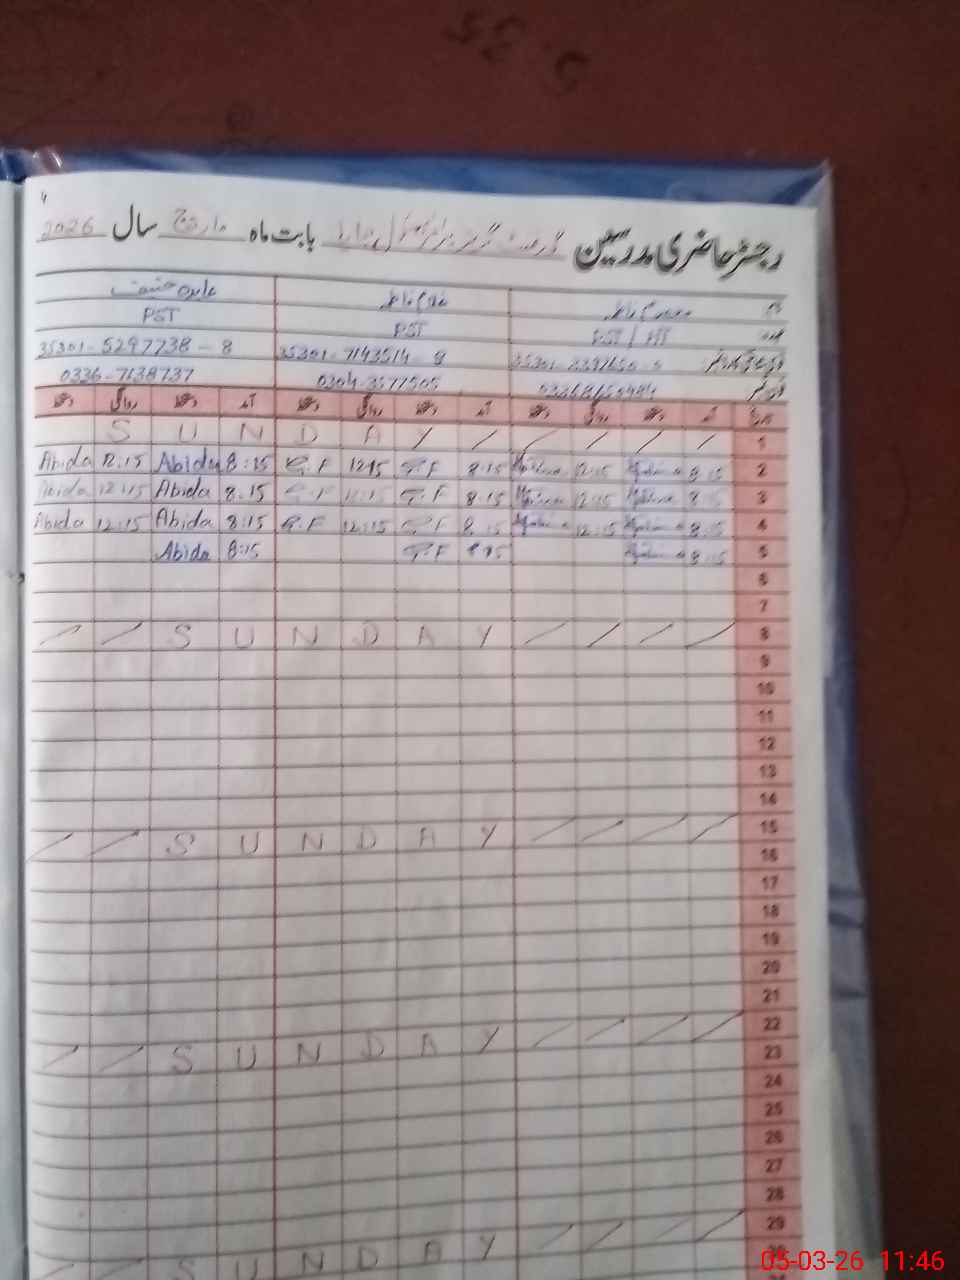 4
رجسٹر حاضری مدرسین گورنمنٹ گرلز پرائمری سکول بابت ماہ مارچ سال 2026
نام فاطمہ عابدہ حنیف
عہدہ PST / HT PST PST
35301-7143514-8 35301-5297738-8
فون نمبر 0304-3577505 0336-7138737
تاریخ آمد دستخط روانگی دستخط آمد دستخط روانگی دستخط آمد دستخط روانگی دستخط
S U N D A Y / / / / / 1
Abida 12:15 Abida 8:15 G.F 12:15 G.F 8:15 12:15 8:15 2
Abida 12:15 Abida 8:15 G.F 12:15 G.F 8:15 12:15 8:15 3
Abida 12:15 Abida 8:15 G.F 12:15 G.F 8:15 12:15 8:15 4
Abida 8:15 G.F 8:15 8:15 5
6
7
/ / S U N D A Y / / / / 8
9
10
11
12
13
14
/ / S U N D A Y / / / / 15
16
17
18
19
20
21
/ / S U N D A Y / / / / 22
23
24
25
26
27
28
/ / S U N D A Y / / / / 29
05-03-26 11:46